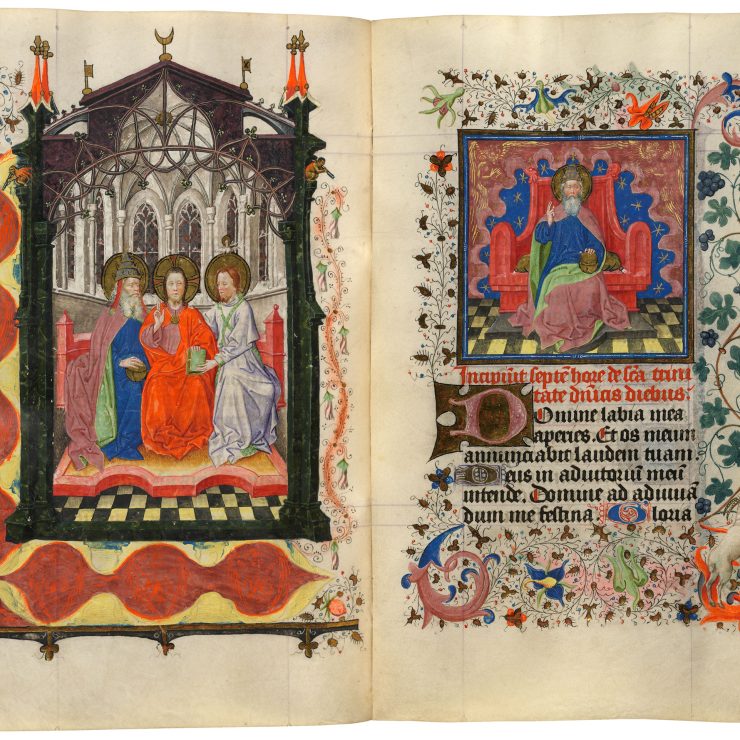 Incipiūt septē hore de scā trini
tate dnīcis diebus:
Domine labia mea
aperies. Et os meum
annunciabit laudem tuam.
Deus in adiutorium meū
intende. Domine ad adiuuā
dum me festina Gloria